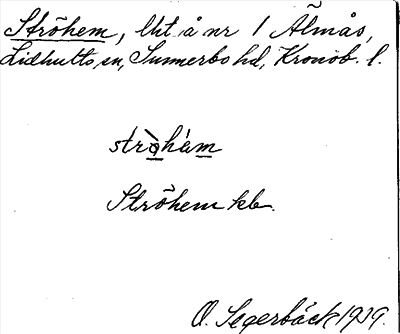 Ströhem, lht å nr 1 Älmås,
Lidhults sn, Sunnerbo hd, Kronob. l.
stròhém
Ströhem kb.
O. Segerbäck 1939.